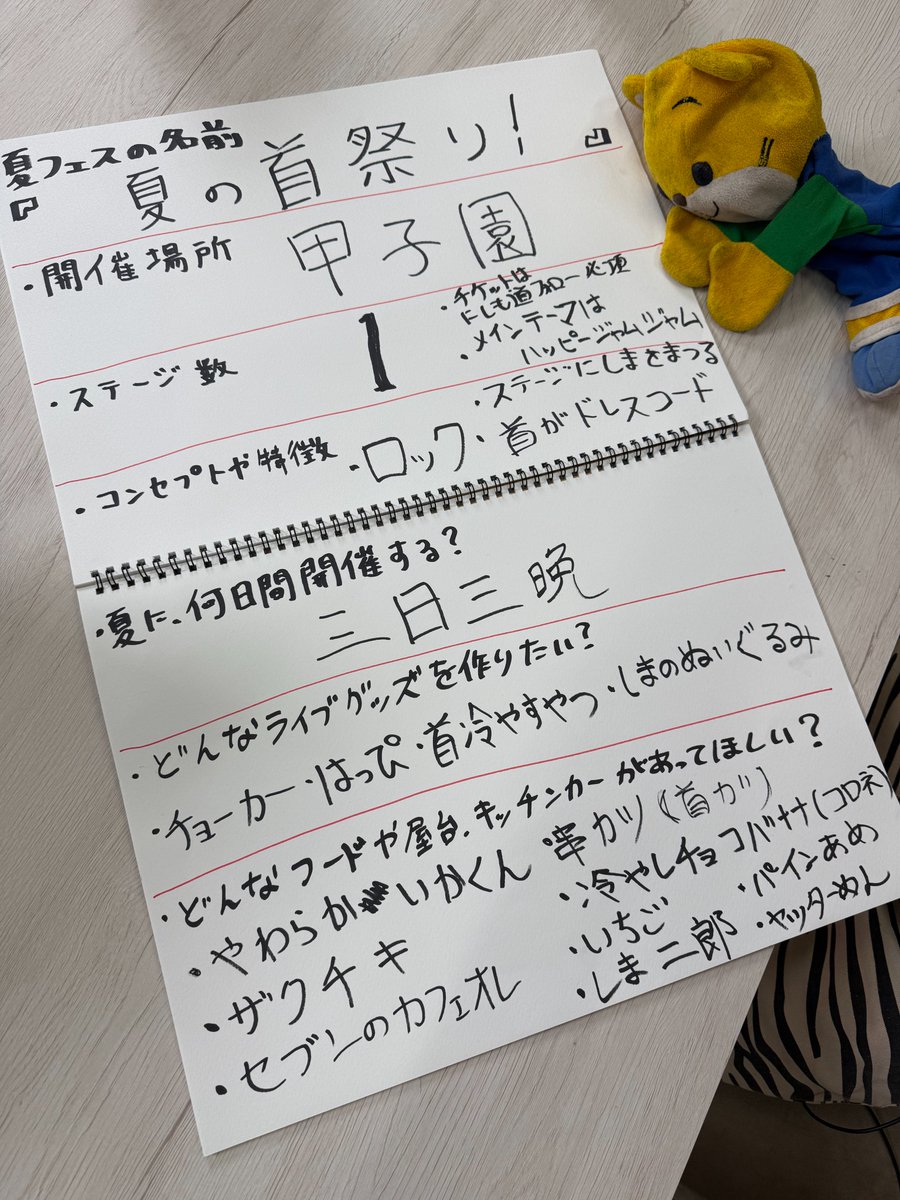 夏フェスの名前
『 夏の首祭り! 』
・開催場所 甲子園
・チケットは
にしも道フォロー必須
・メインテーマは
ハッピージャムジャム
・ステージ数 1
・ステージにしまをまつる
・コンセプトや特徴 ・ロック ・首がドレスコード
・夏に、何日間開催する?
三日三晩
・どんなライブグッズを作りたい?
・チョーカー ・はっぴ ・首冷やすやつ ・しまのぬいぐるみ
・どんなフードや屋台、キッチンカーがあってほしい?
・やわらかいかくん
・串カツ(首カツ)
・ザクチキ
・冷やしチョコバナナ(コロネ)
・いちご ・パインあめ
・セブンのカフェオレ
・しま二郎 ・ヤッターめん